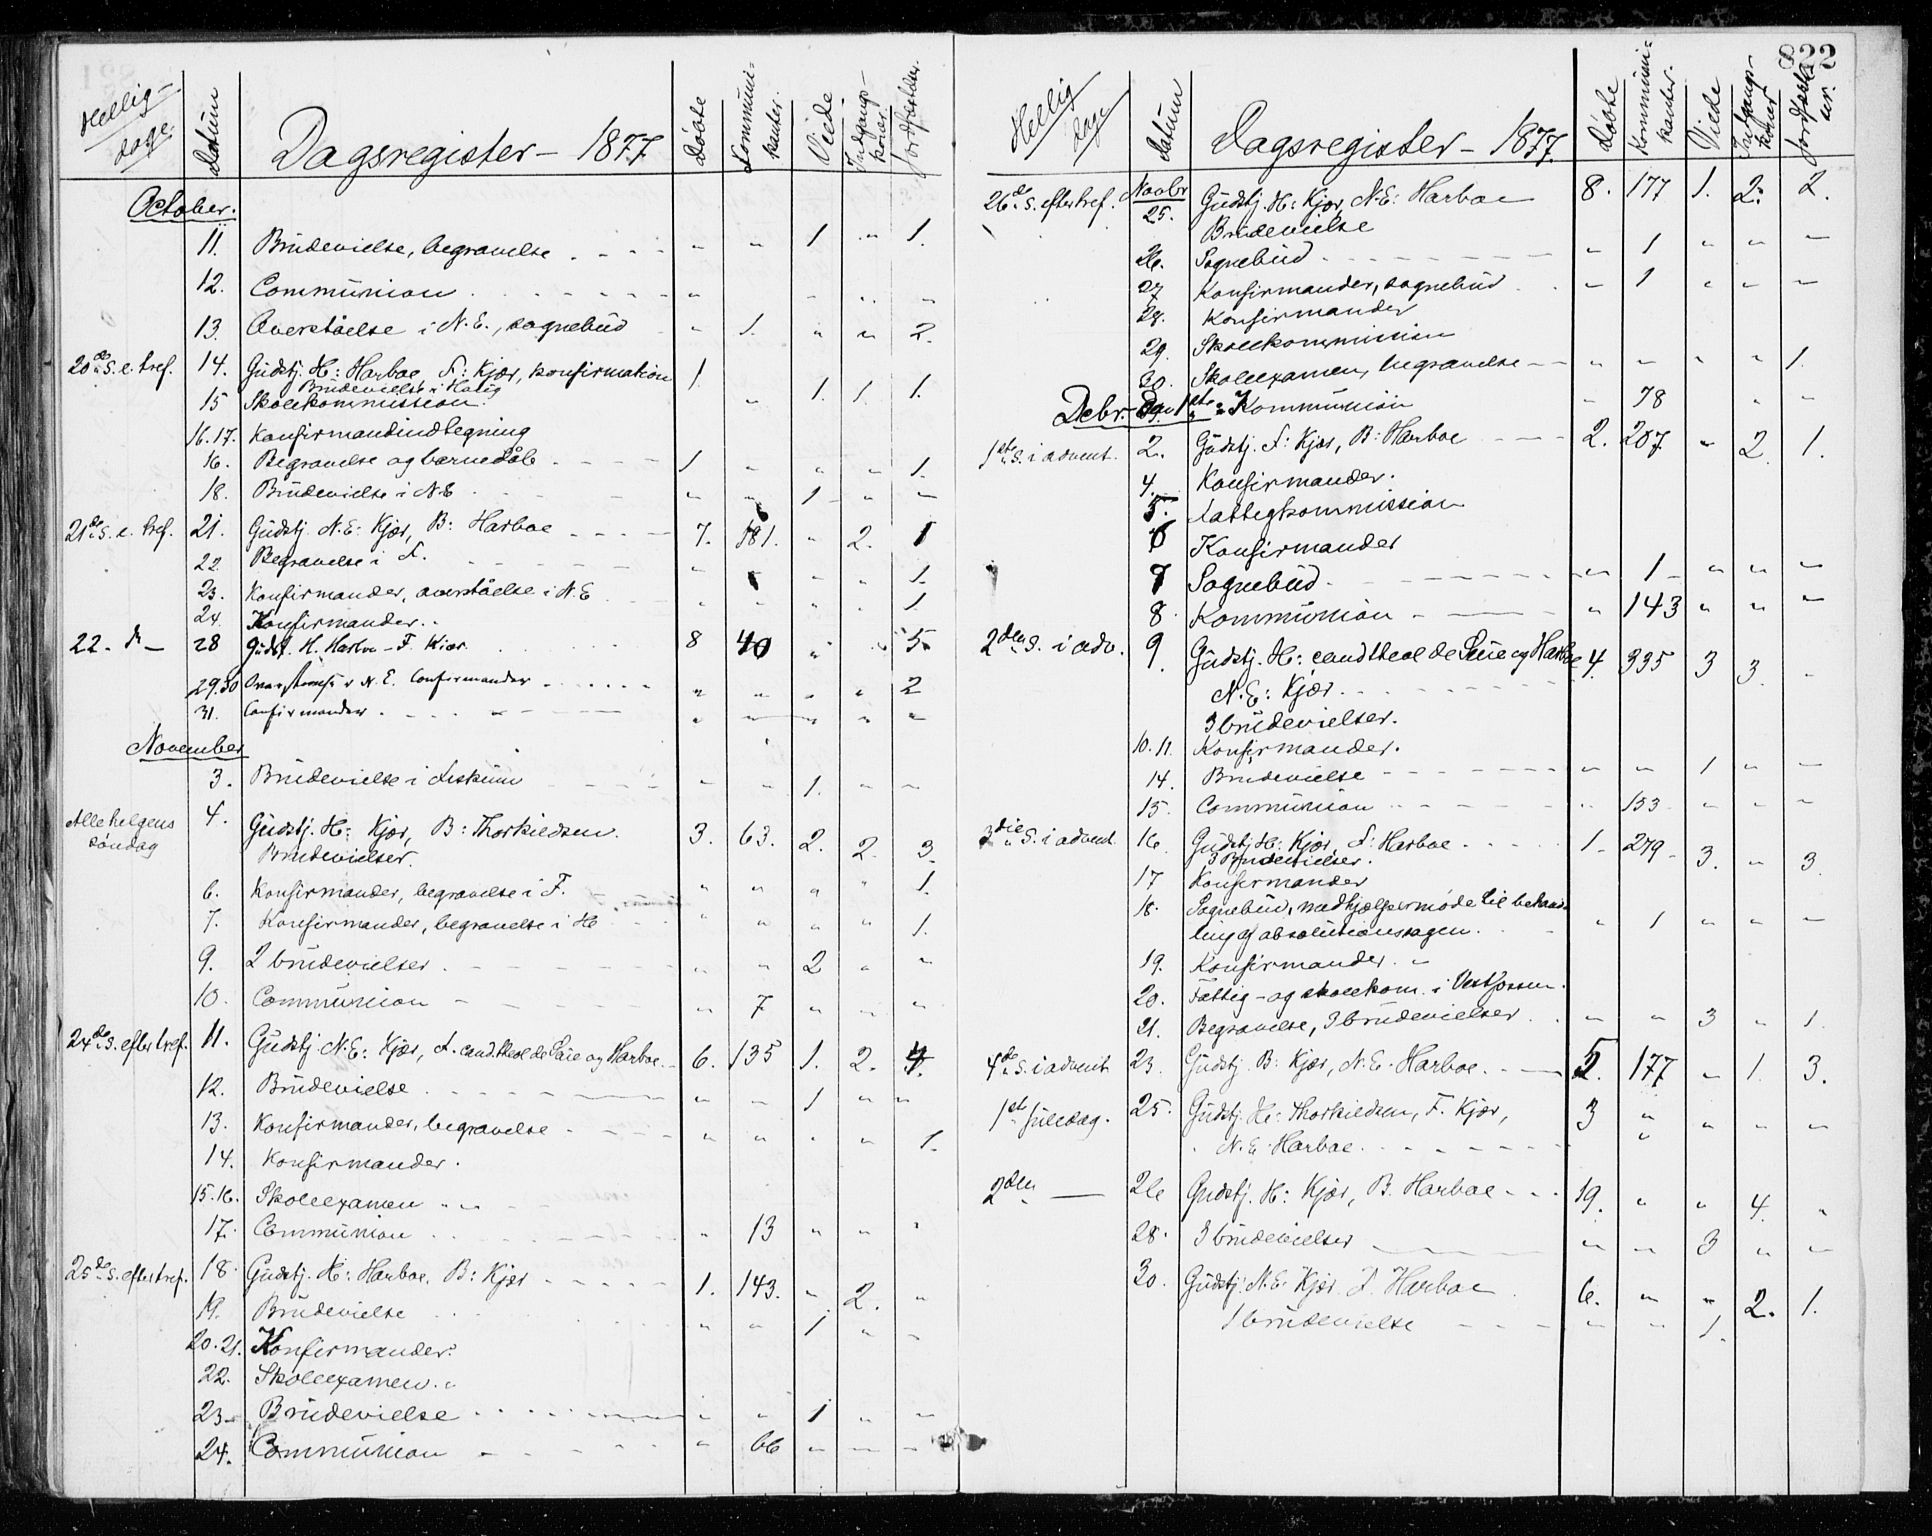 Hellig-
dage.
Datum
Dagsregister – 1877
Døbte
Kommuni-
kanter.
Viede
Indgangs-
koner.
Jordfæstelser.
October.
11. Brudevielse, begravelse " " 1 " 1.
12. Communion " " " "
13. Overstøelse i N.E., sognebud " 1. " " 2.
20de S. e. tref. 14. Gudstj. H: Harboe, F: Kjær, konfirmation 1.
Brudevielse i Houg
15 Skolekommission. " 1. 1. 1.
16.17. Konfirmandindtegning
16. Begravelse og barnedåb 1 " " " 1.
18. Brudevielse i N.E " " 1 " "
21de S. e. tref. 21. Gudstj. N.E: Kjær, B: Harboe 7. 181. " 2. 1
22. Begravelse i F. " " " 1.
23. Konfirmander, overstøelse i N.E " " " " 1.
24. Konfirmander.
22. de — 28 Gudst. H. Harboe - F. Kiær 8 40 " " 5
29.30 Overstøelse i N.E. Confirmander " " " " 2
31. Confirmander " " " "
November
3. Brudevielse i Fiskum " " 1. " "
Allehelgens
søndag
4. Gudstj. H: Kjær, B: Thorkildsen. 3. 63. 2. 2. 3.
Brudevielser.
6. Konfirmander, begravelse i F. " " " " 1.
7. Konfirmander, begravelse i H " " " " 1.
9. 2 brudevielser " " 2 " "
10. Communion " 7 " " "
24de S. efter tref. 11. Gudstj N.E: Kjær, F. cand. theol de Seue og Harboe. 6. 135 1. 2. 4.
12. Brudevielse " " 1 " "
13. Konfirmander, begravelse " " " " 1.
14. Konfirmander.
15.16. Skoleexamen
17. Communion " 13 " " "
25de S. efter tref. 18. Gudstj. H: Harboe, B: Kjær 1. 143. " 2. "
19. Brudevielse " " 1 " "
20.21. Konfirmander.
22. Skoleexamen.
23. Brudevielse " " 1 " "
24. Communion " 66 " " "
822
Hellig
dage
Datum
Dagsregister – 1877.
Døbte
Kommuni-
kanter.
Viede
Indgangs-
koner
Jordfæstel-
ser.
26de S. efter tref. Novbr 25. Gudstj. H: Kjær, N.E: Harboe 8. 177 1. 2. 2.
Brudevielse
26. Sognebud " 1 " " "
27 Konfirmander, sognebud " 1 " " "
28. Konfirmander
29. Skolekommission
30. Skoleexamen, begravelse " " " " 1.
Decbr. Den 1ste: Kommunion " 78 " "
1ste S. i advent. 2. Gudstj. F: Kjær, B: Harboe 2. 207 " 2. 1.
4. Konfirmander.
5. Fattigkommission
6 Konfirmander
7 Sognebud " 1 " " "
8. Kommunion " 143 " " "
2den S. i adv. 9. Gudstj. H: cand theol de Seue og Harboe 4. 335 3 3. "
N.E: Kjær.
3 brudevielser.
10.11. Konfirmander.
14. Brudevielse " " 1 " "
15. Communion " 153 " " "
3die S. i advent. 16. Gudstj H: Kjær, F: Harboe 1. 279 3. " 3.
3 Brudevielser.
17 Konfirmander
18. Sognebud, medhjælpermøde til behand-
ling af absolutionssagen. " 1 " " "
19. Konfirmander.
20. Fattig- og skolekom. i Vestfossen.
21. Begravelse, 3 brudevielser " " 3 " 1.
4de S. i advent 23. Gudstj. B: Kjær, N.E. Harboe. 5. 177 " 1. 3.
1ste Juledag. 25. Gudstj. H: Thorkildsen, F. Kjær, 3 " " " "
N.E. Harboe.
2den — 26 Gudstj. H: Kjær, B. Harboe 19. " " 4. "
28. 3 brudevielser " " 3 " "
30. Gudstj. N.E: Kjær, F. Harboe 6. " " 2. 1.
1 brudevielse " " 1.